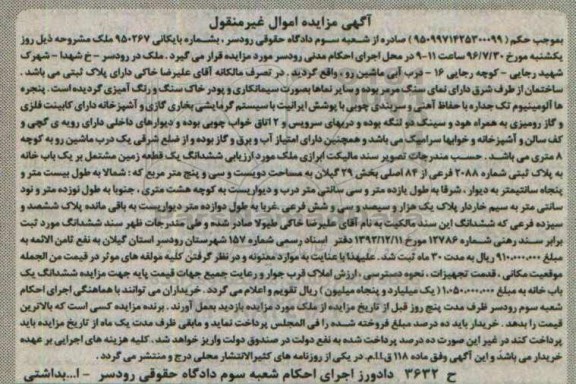 آگهی مزایده اموال غیرمنقول
بموجب حکم ( ۹۵۰۹۹۷۱۴۲۵۳۰۰۰۹۹ ) صادره از شعبه سوم دادگاه حقوقی رودسر ، بشماره بایگانی ۹۵۰۲۶۷ ملک مشروحه ذیل روز
یکشنبه مورخ ۹۶/۷/۳۰ ساعت ۱۱-۹ در محل اجرای احکام مدنی رودسر مورد مزایده قرار می گیرد . ملک در رودسر - خ شهدا - شهرک
شهید رجایی - کوچه رجایی ۱۶ - درب آبی ماشین رو ، واقع گردید . در تصرف مالکانه آقای علیرضا خاکی دارای پلاک ثبتی می باشد .
ساختمان از طرف شرق دارای نمای سنگ مرمر بوده و سایر نماها بصورت سیمانکاری و پودر خاک سنگ و رنگ آمیزی گردیده است . پنجره
ها آلومینیوم تک جداره با حفاظ آهنی و سربندی چوبی با پوشش ایرانیت با سیستم گرمایشی بخاری گازی و آشپزخانه دارای کابینت فلزی
و گاز رومیزی به همراه هود و سینک دو لنگه بوده و دربهای سرویس و ۲ اتاق خواب چوبی بوده و دیوارهای داخلی دارای رویه ی گچی و
کف سالن و آشپزخانه و خوابها سرامیک می باشد و همچنین دارای امتیاز آب و برق و گاز بوده و از ضلع شرقی یک درب ماشین رو به کوچه
۸ متری می باشد . حسب مندرجات تصویر سند مالکیت ابرازی ملک مورد ارزیابی ششدانگ یک قطعه زمین مشتمل بر یک باب خانه
به پلاک ثبتی شماره ۲۰۸۸ فرعی از ۸۴ اصلی بخش ۲۹ گیلان به مساحت دویست و سی و پنج متر مربع که : شمالا به طول بیست متر و
پنجاه سانتیمتر به دیوار ، شرقا به طول یازده متر و سی سانتی متر درب و دیواریست به کوچه هشت متری ، جنوبا به طول نوزده متر و نود
سانتی متر به سیم خاردار پلاک یک هزار و سیصد و سی و شش فرعی ،غربا به طول دوازده متر دیواریست به باقی مانده پلاک ششصد و
سیزده فرعی که ششدانگ این سند مالکیت به نام آقای علیرضا خاکی طیولا صادر شده و طی مندرجات ظهر سند ششدانگ مورد ثبت
برابر سند رهنی شماره ۱۲۷۸۶ مورخ ۱۳۹۳/۱۲/۱۱ دفتر اسناد رسمی شماره ۱۵۷ شهرستان رودسر استان گیلان به نفع ثامن الائمه به
مبلغ ۹۱۰.۰۰۰.۰۰۰ ریال به مدت ۳۰ ماه ثبت شد . علیهذا با عنایت به موارد معنونه و در نظر گرفتن کلیه مولفه های موثر در قیمت من الجمله
موقعیت مکانی ، قدمت تجهیزات ، نحوه دسترسی ، ارزش املاک قرب جوار و رعایت جمیع جهات قیمت پایه جهت مزایده ششدانگ یک
باب خانه به مبلغ ۱.۰۵۰.۰۰۰.۰۰۰ ( یک میلیارد و پنجاه میلیون ) ریال تقویم و اعلام می گردد . خریداران می توانند با هماهنگی اجرای احکام
شعبه سوم رودسر ظرف مدت پنج روز قبل از تاریخ مزایده از ملک مورد مزایده بازدید بعمل آورند . برنده مزایده کسی است که بالاترین
قیمت را بدهد . خریدار باید ده درصد مبلغ فروخته شده را فی المجلس پرداخت نماید و مابقی ظرف مدت یک ماه از تاریخ مزایده باید
پرداخت کند در غیر این صورت ده درصد پرداخت شده به نفع دولت در صندوق دولت واریز خواهد شد . کلیه هزینه های اجرایی بر عهده
خریدار می باشد و این آگهی وفق ماده ۱۱۸ ق.ا.ا.م. در یکی از روزنامه های کثیرالانتشار محلی درج و منتشر می گردد .
ح ۳۶۳۲ دادورز اجرای احکام شعبه سوم دادگاه حقوقی رودسر - ا...بداشتی